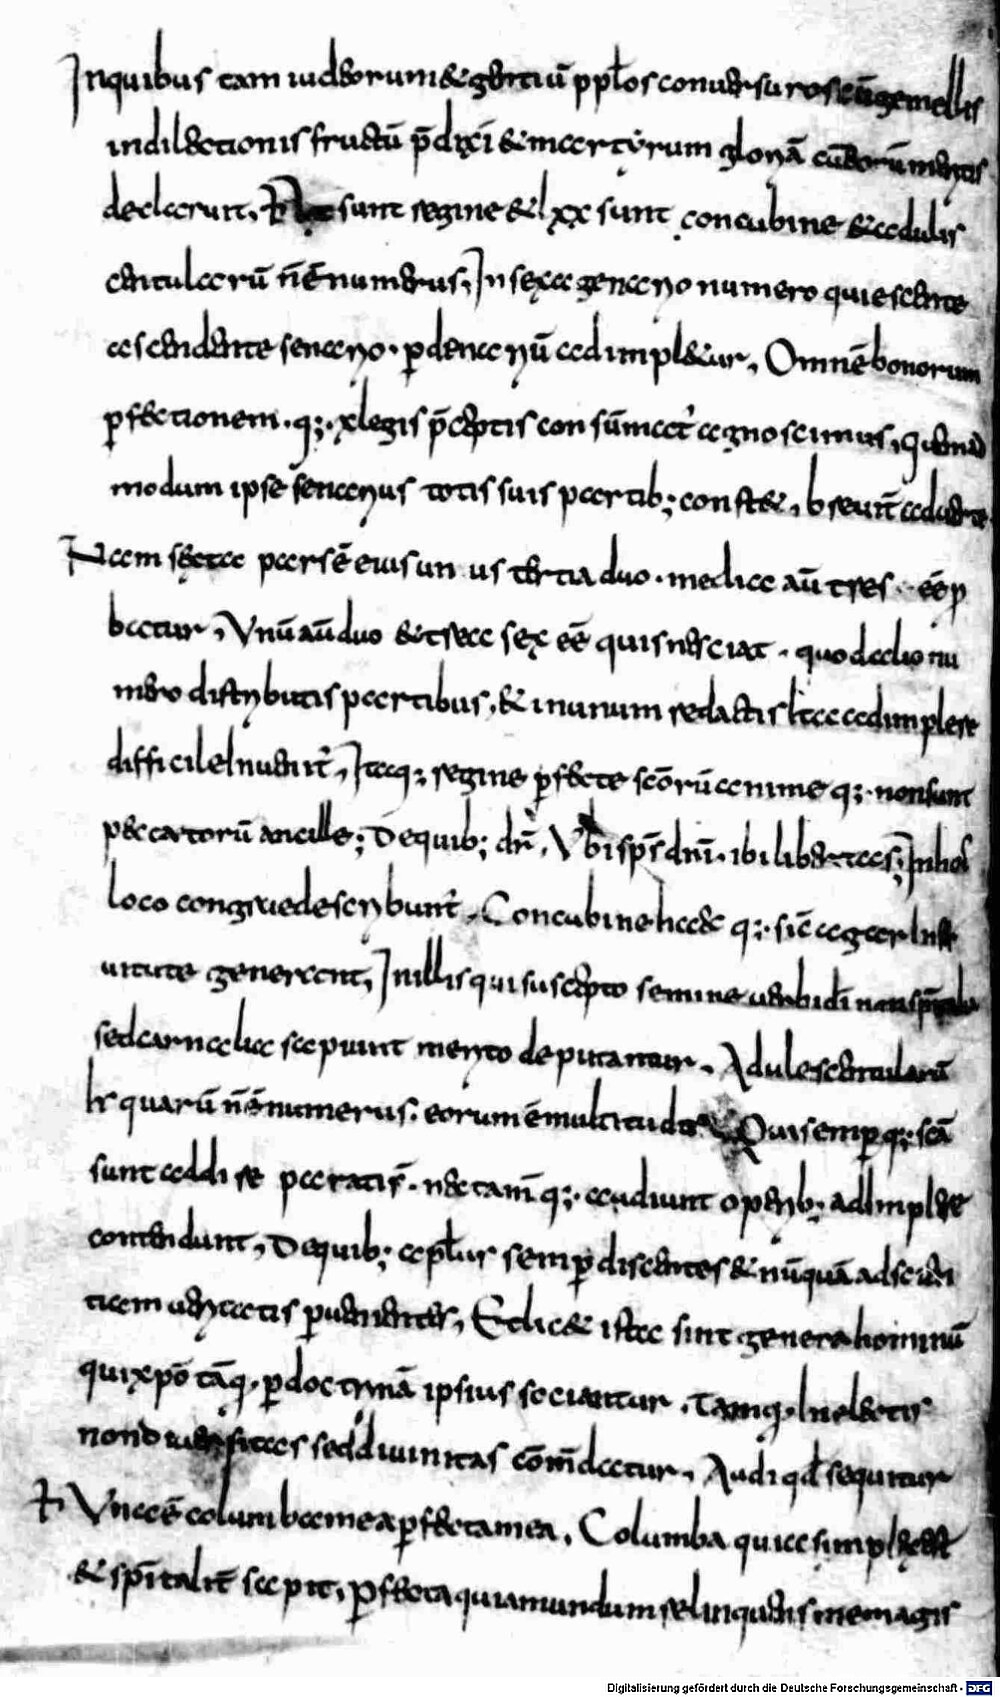 Inquibus tam iudeorum & gentiū ppłos conuersuros cū gemellis
indilectionis fructū p̄dixi & martyrum gloriā
declarauit, sunt regine & lxx sunt concubine & adulis
centularū n̄ ē numerus; In sexagenario numero quiescente
ascendente senario · p denariū adimpletur, Omnē bonorum
pfectionem · q; · xlegis p̄ceptis consūmat̄ agnoscimus, quemad
modum ipse senarius totis suis partib; constet, breuit̄ aduerte
Nam sexta pars ē eius unus tertia duo · medica aū tres · eē p
batur, Vnū aū duo & tres sex eē quis nesciat · quodadio nu
mero distributis partibus, & inunum redactis adimplere
difficile Inuenit̄, Itaq; regine pfecte scōrū anime q; · non sunt
peccatorū ancille; Dequib; dr̄, Vbi sps̄ dn̄i · ibi libertas; Inhoc
loco congrue describunt̄, Concubine q; ·
uirtute generant, Inillis qui suscepto semine uerbi dī non
sed carnalia sapiunt merito deputantur, Adulescentularū
quarū n̄ ē numerus; eorum ē multitudo Qui semp q; · scā
sunt addi re parati s̄ · nec tam̄ q; · audiunt operib; adimplere
contendunt, Dequib; apłus semp discentes & nūquā ad scien
tiam ueritatis peruenientes, & ista sint genera hominū
qui xp̄o tāq · p doctrinā ipsius sociantur, tamq · Inelectis
non diuersitas sed diuinitas cōm̄datur, Audi qd̄ sequitur
Vna ē columba mea pfecta mea, Columba quia simplex est
& sp̄italit̄ sapit, pfecta quia mundum relinquens me magis
Digitalisierung gefördert durch die Deutsche Forschungsgemeinschaft - DFG